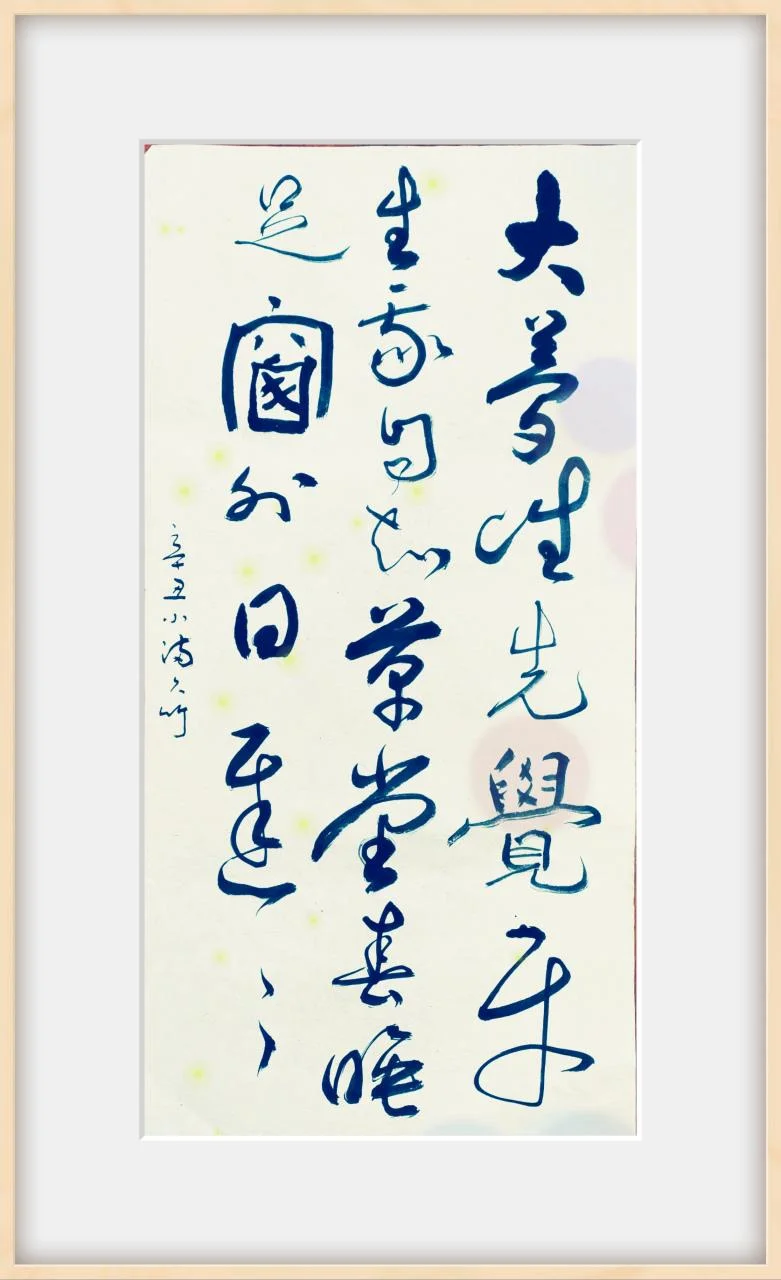 大夢誰先覺平
生我自知草堂春睡
足窗外日遲〻
辛丑小滿 竹